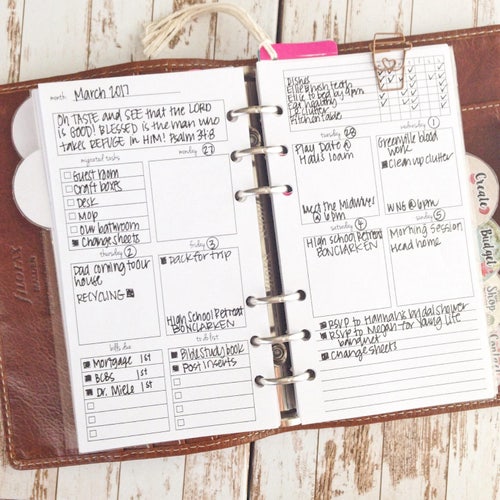 month: March 2017
Oh TASTE and SEE that the LORD
is GOOD! BLESSED is the man who
takes REFUGE in HIM! Psalm 34:8
migrated tasks
Guest room
Craft boxes
Desk
Mop
Our bathroom
Change sheets
monday 27
thursday 2
Dad coming to our
house
RECYCLING
friday 3
Pack for trip
High School Retreat
BONCLARKEN
bills due
Mortgage 1st
BCBS 1st
Dr. Miele 1st
to do list
Bible study book
Post inserts
Dishes
Ellie brush teeth
Ellie to bed by 9pm
Eat healthy
De clutter
Kitchen table
tuesday 28
Play Date @
Halls 10am
Meet the Midway!
@ 6pm
wednesday 1
Greenville blood
work
Clean up clutter
WNG @ 6pm
saturday 4
High School Retreat
BONCLARKEN
sunday 5
Morning Session
Head home
RSVP to Hannah's bridal shower
RSVP to Megan for Young Life
banquet
Change sheets
Create
Budget
Shop